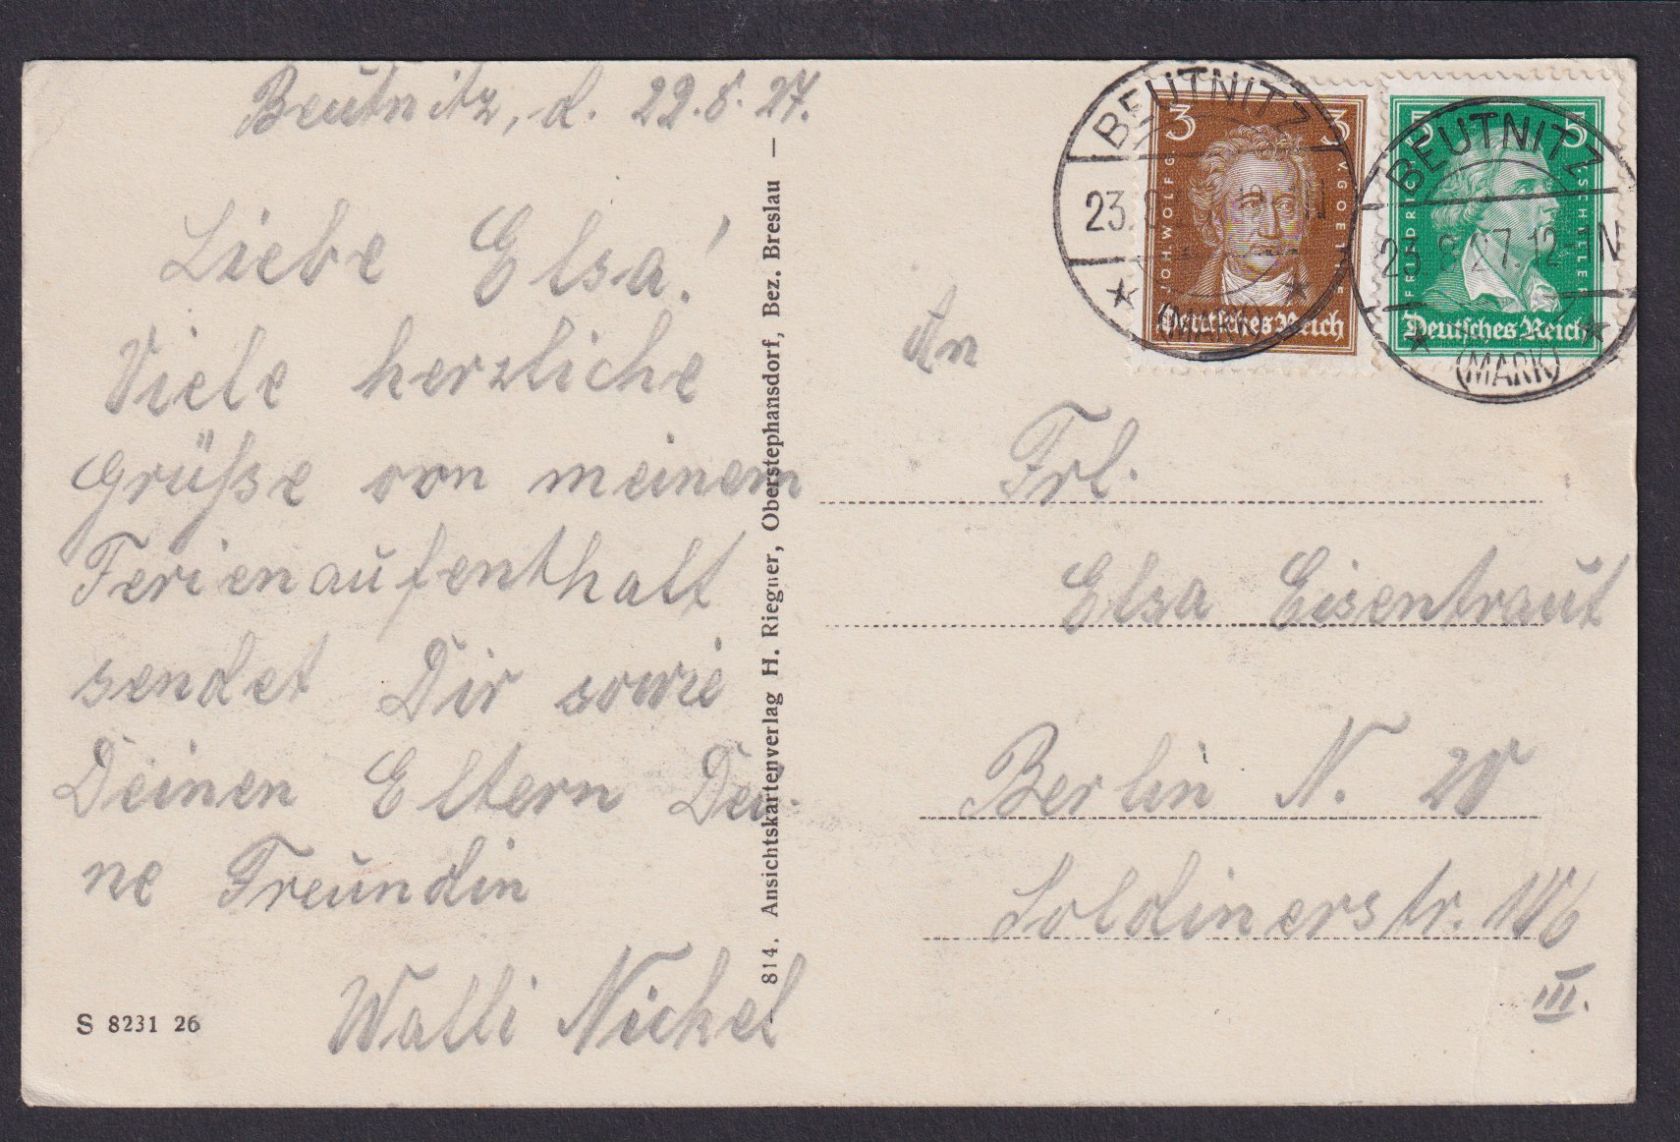 Beutnitz, d. 22.8.27.
Liebe Elsa!
Viele herzliche
Grüße von meinem
Ferienaufenthalt
sendet Dir sowie
Deinen Eltern Dei-
ne Freundin
Walli Nickel
S 8231 26
814. Ansichtskartenverlag H. Riegner, Oberstephansdorf, Bez. Breslau –
BEUTNITZ
23.
(MARK)
3 3
JOH. WOLFG. V. GOETHE
Deutsches Reich
BEUTNITZ
23.8.27.12-1N
(MARK)
5 5
FRIEDRICH SCHILLER
Deutsches Reich
An
Frl.
Elsa Eisentraut
Berlin N. 20
Soldinerstr.
III.